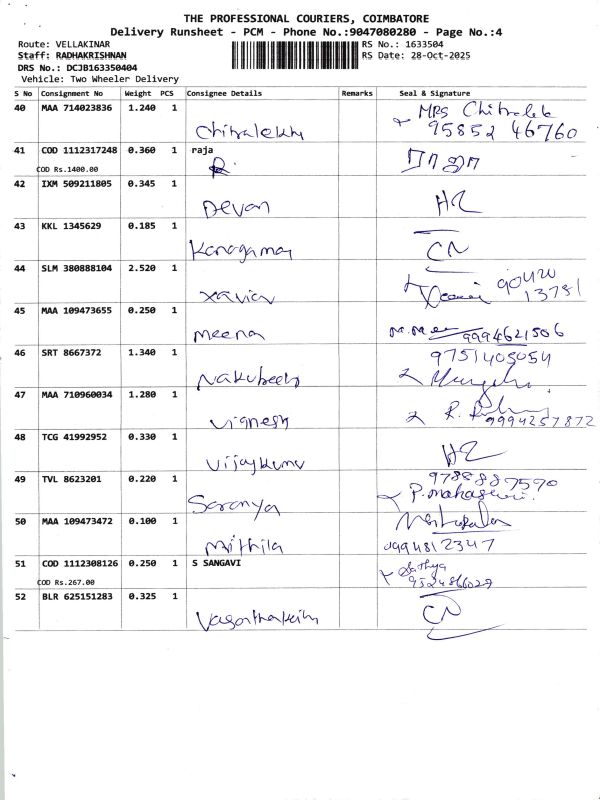 THE PROFESSIONAL COURIERS, COIMBATORE
Delivery Runsheet - PCM - Phone No.:9047080280 - Page No.:4
Route: VELLAKINAR
RS No.: 1633504
Staff: RADHAKRISHNAN
RS Date: 28-Oct-2025
DRS No.: DCJB163350404
Vehicle: Two Wheeler Delivery
S No Consignment No Weight PCS Consignee Details Remarks Seal & Signature
40 MAA 714023836 1.240 1 Chitralekha MRS Chitralek
95852 46760
41 COD 1112317248 0.360 1 raja ராஜா
COD Rs.1400.00 R.
42 IXM 509211805 0.345 1 Devan HZ
43 KKL 1345629 0.185 1 CN
44 SLM 380888104 2.520 1 Xavier 90420
13781
45 MAA 109473655 0.250 1 Meena 9994621506
46 SRT 8667372 1.340 1 9751405054
47 MAA 710960034 1.280 1 Vignesh R. 9994257872
48 TCG 41992952 0.330 1 Vijaykumar HZ
49 TVL 8623201 0.220 1 Saranya 9788887590
P. Maheswari
50 MAA 109473472 0.100 1 Mithila
9994812347
51 COD 1112308126 0.250 1 S SANGAVI Sathya
COD Rs.267.00 9524866029
52 BLR 625151283 0.325 1 CN